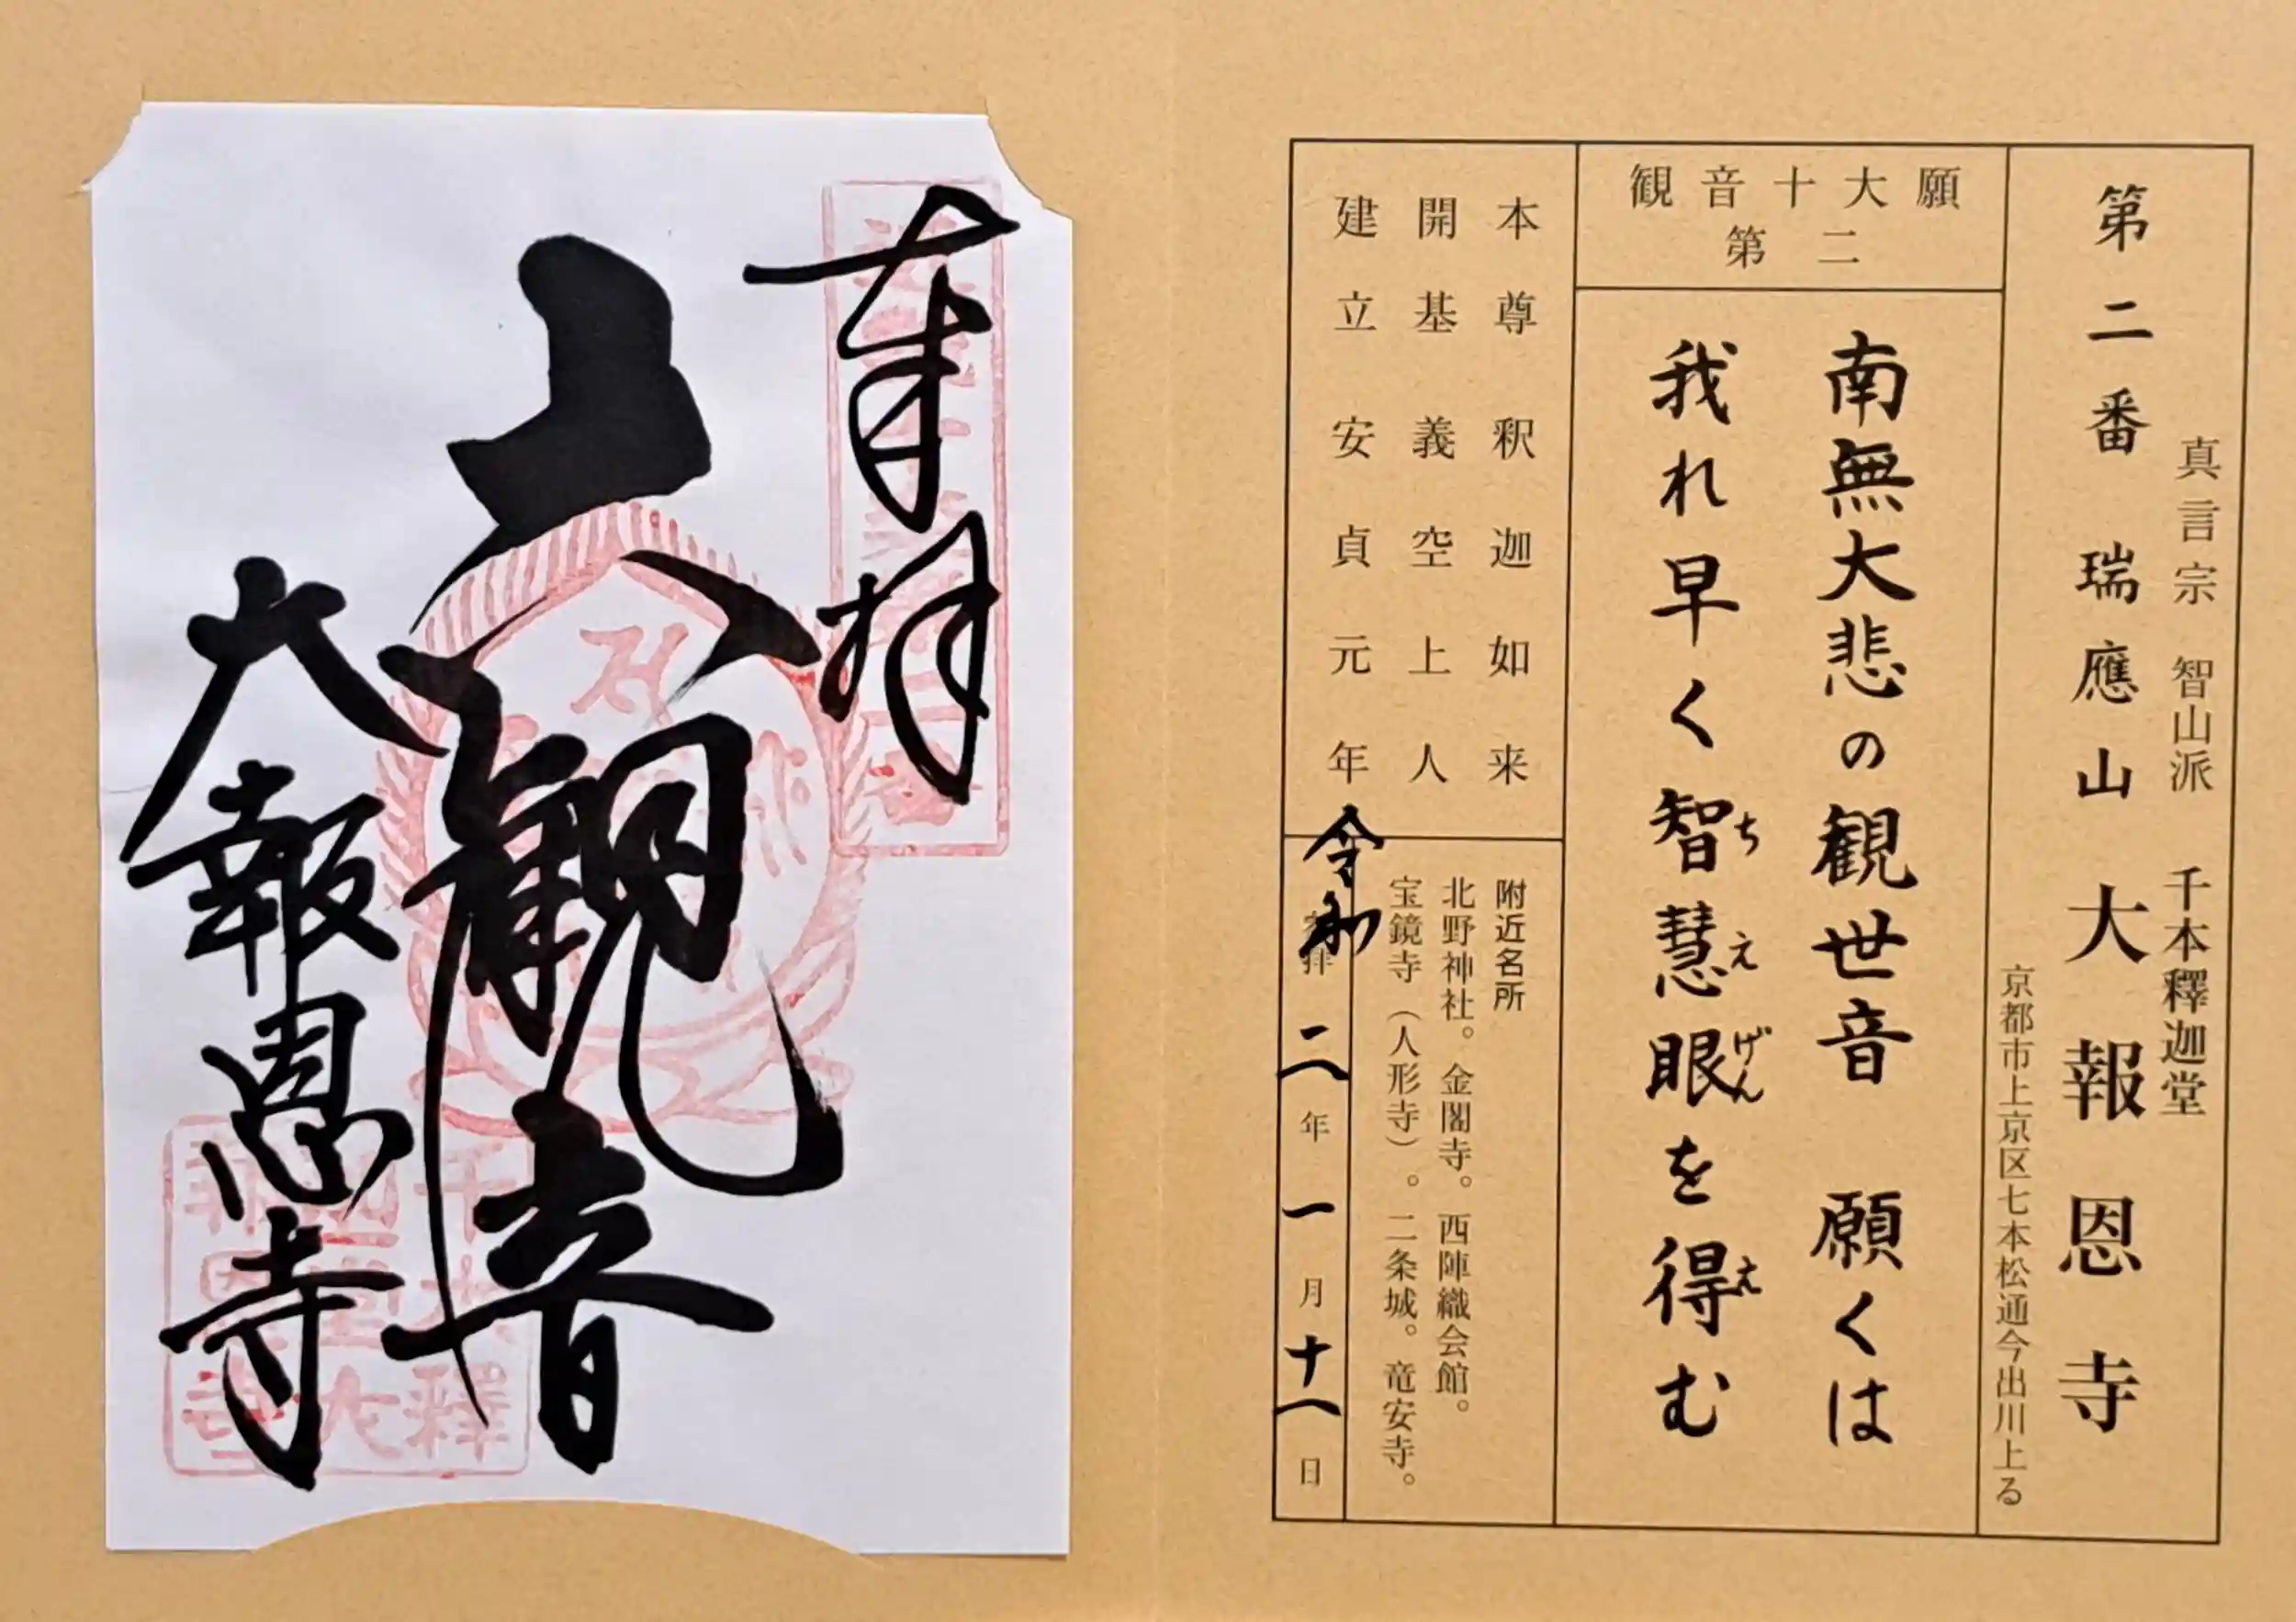 真言宗 智山派 千本釋迦堂
第二番 瑞應山 大報恩寺
京都市上京区七本松通今出川上る
観音十大願
第二
南無大悲の観世音 願くは
我れ早く智慧眼を得む
ちえげんえ
本尊 釈迦如来
開基 義空上人
建立 安貞元年
附近名所
北野神社。金閣寺。西陣織会館。
宝鏡寺（人形寺）。二条城。竜安寺。
令和二年一月十一日
奉拝
六観音
大報恩寺